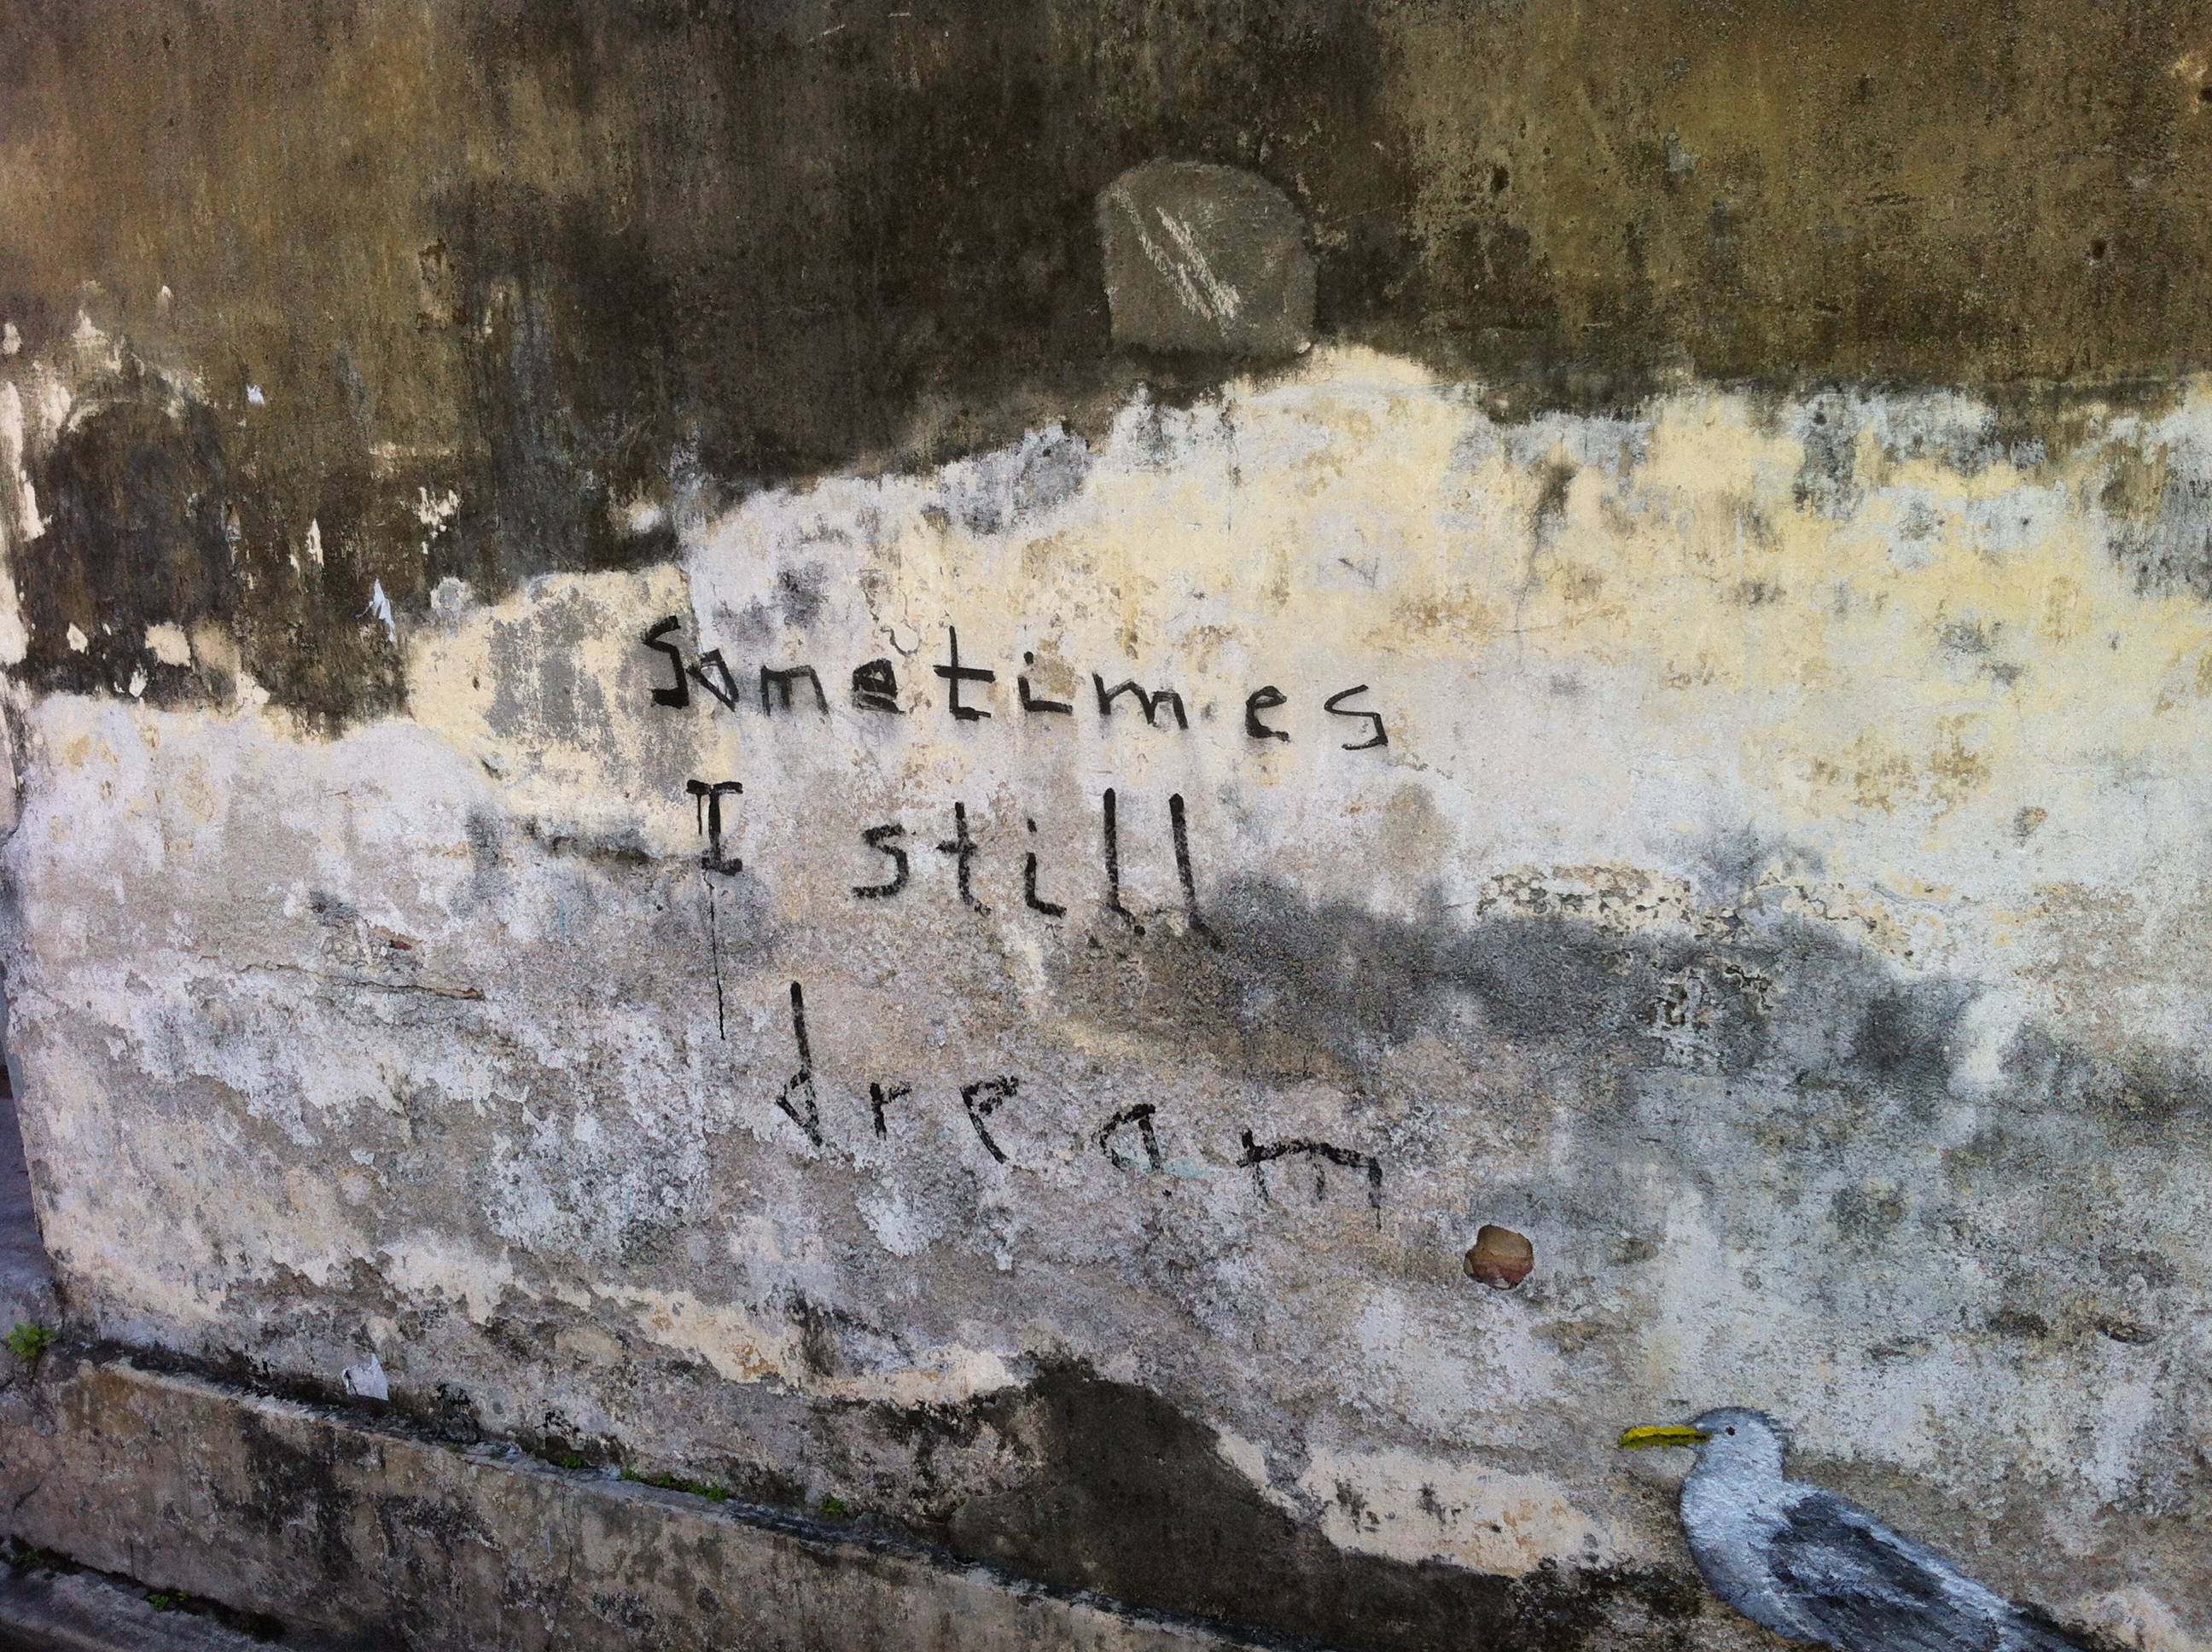 Sometimes
I still
dream